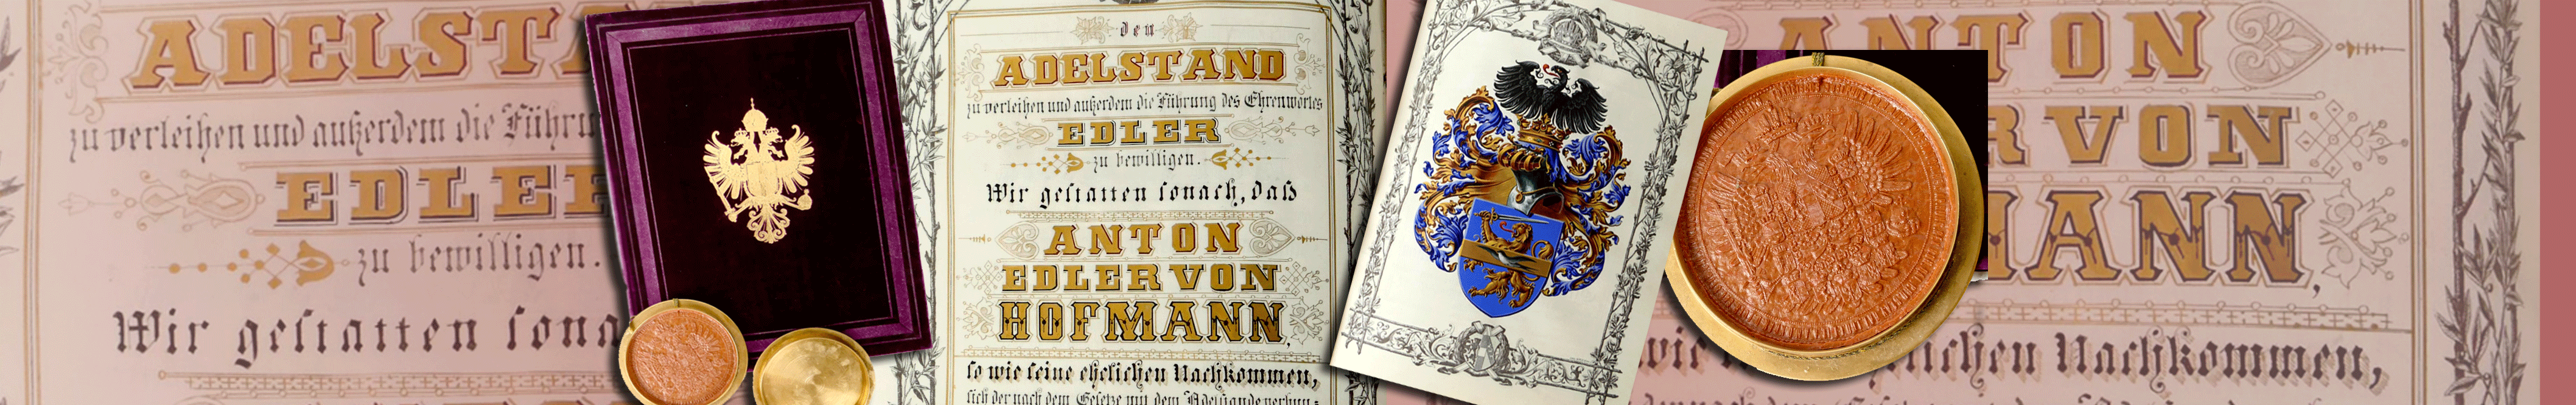 den
ADELSTAND
zu verleihen und außerdem die Führung des Ehrenwortes
EDLER
zu bewilligen.
Wir gestatten sonach, daß
ANTON
EDLER VON
HOFMANN,
so wie seine ehelichen Nachkommen,
sich der nach dem Gesetze mit dem Adelstande verbun-
ADELST
zu verleihen und außerdem die Führu
EDLER
zu bewilligen.
Wir gestatten sona
ANTON
R VON
MANN,
wie ehelichen Nachkommen,